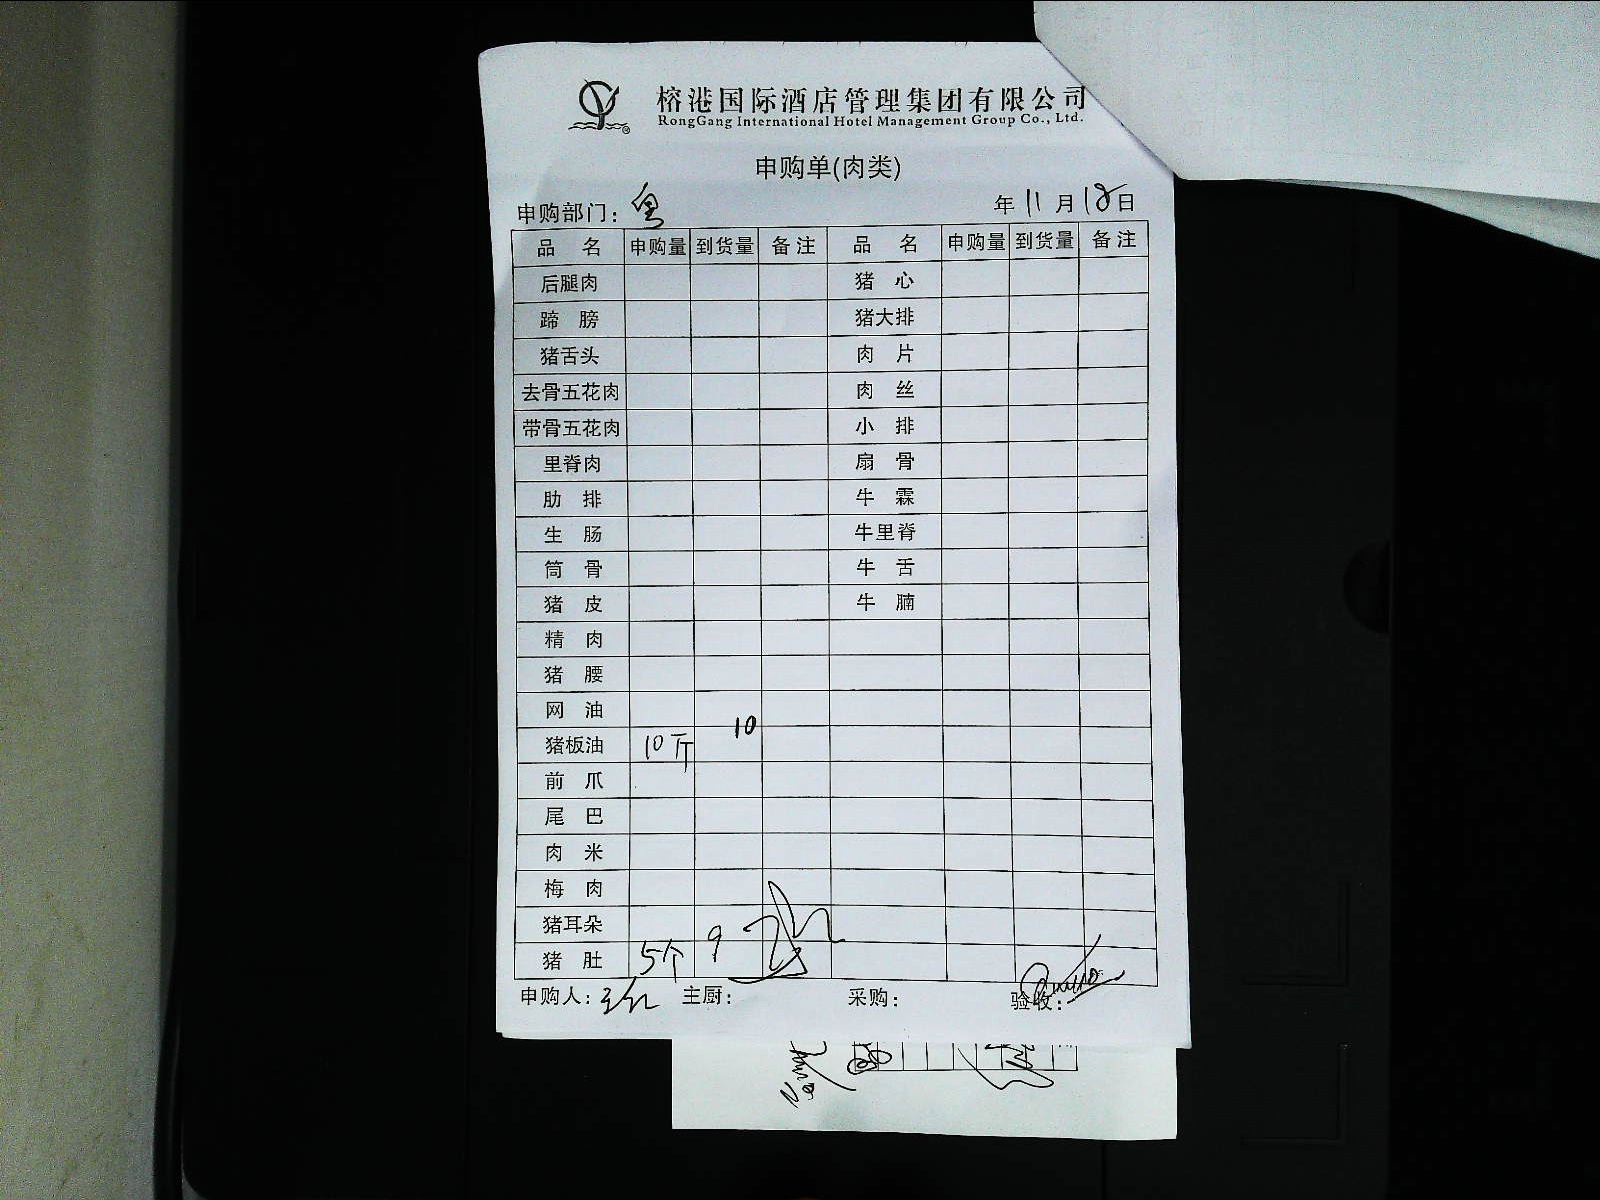 榕港国际酒店管理集团有限公司
RongGang International Hotel Management Group Co., Ltd.
申购单(肉类)
申购部门: 粤 年 11 月 18 日
品 名 申购量 到货量 备注 品 名 申购量 到货量 备注
后腿肉 猪 心
蹄 膀 猪大排
猪舌头 肉 片
去骨五花肉 肉 丝
带骨五花肉 小 排
里脊肉 扇 骨
肋 排 牛 霖
生 肠 牛里脊
筒 骨 牛 舌
猪 皮 牛 腩
精 肉
猪 腰
网 油
猪板油 10斤 10
前 爪
尾 巴
肉 米
梅 肉
猪耳朵
猪 肚 5个 9
申购人: 主厨: 采购: 验收: